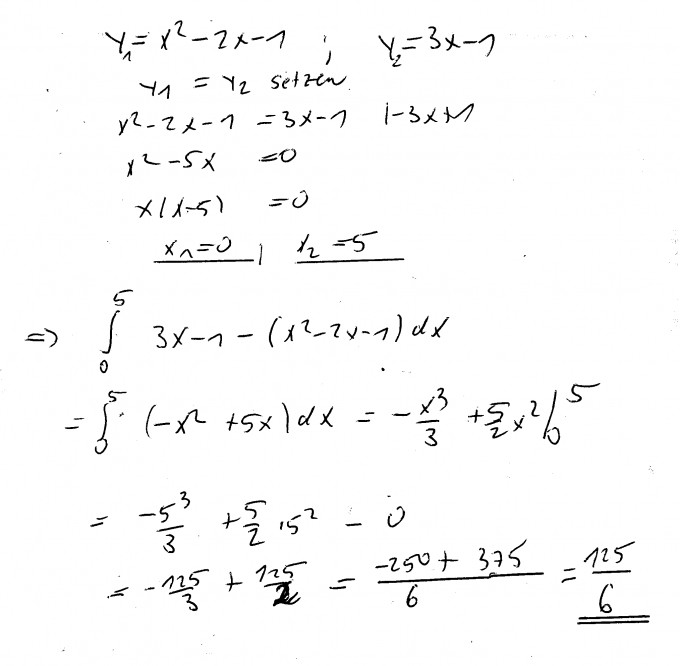 y₁ = x² - 2x - 1 ; y₂ = 3x - 1
y1 = y2 setzen
x² - 2x - 1 = 3x - 1 | -3x +1
x² - 5x = 0
x(x-5) = 0
x₁ = 0 ; x₂ = 5
=> ∫₀⁵ 3x - 1 - (x² - 2x - 1) dx
= ∫₀⁵ (-x² + 5x) dx = - x³/3 + 5/2 x² |₀⁵
= -5³/3 + 5/2 · 5² - 0
= - 125/3 + 125/2 = (-250 + 375)/6 = 125/6